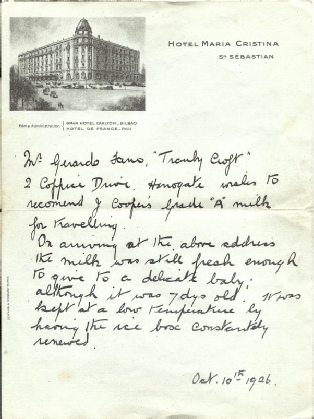 HOTEL MARIA CRISTINA
Sn SÉBASTIAN
Même Administration
GRAN HOTEL CARLTON, BILBAO
HOTEL DE FRANCE - PAU
Mr Gerardo Sans, "Tranby Croft"
2 Coppice Drive, Harrogate wishes to
recomend J Coopers Grade "A" milk
for travelling.
On arriving at the above address
the milk was still fresh enough
to give to a delicate baby;
although it was 7 dys old. It was
kept at a low temperature by
having the ice box constantly
renewed.
Oct. 10th 1926.